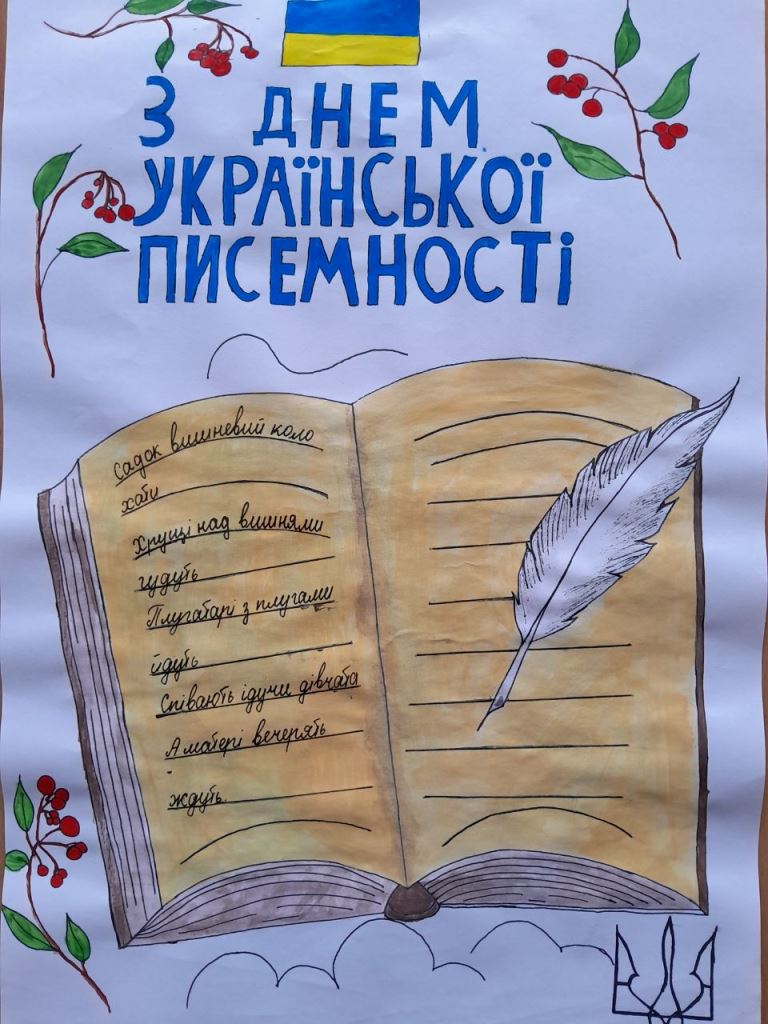 З ДНЕМ
УКРАЇНСЬКОЇ
ПИСЕМНОСТІ
Садок вишневий коло
хати
Хрущі над вишнями
гудуть
Плугатарі з плугами
йдуть
Співають ідучи дівчата
А матері вечерять
ждуть.